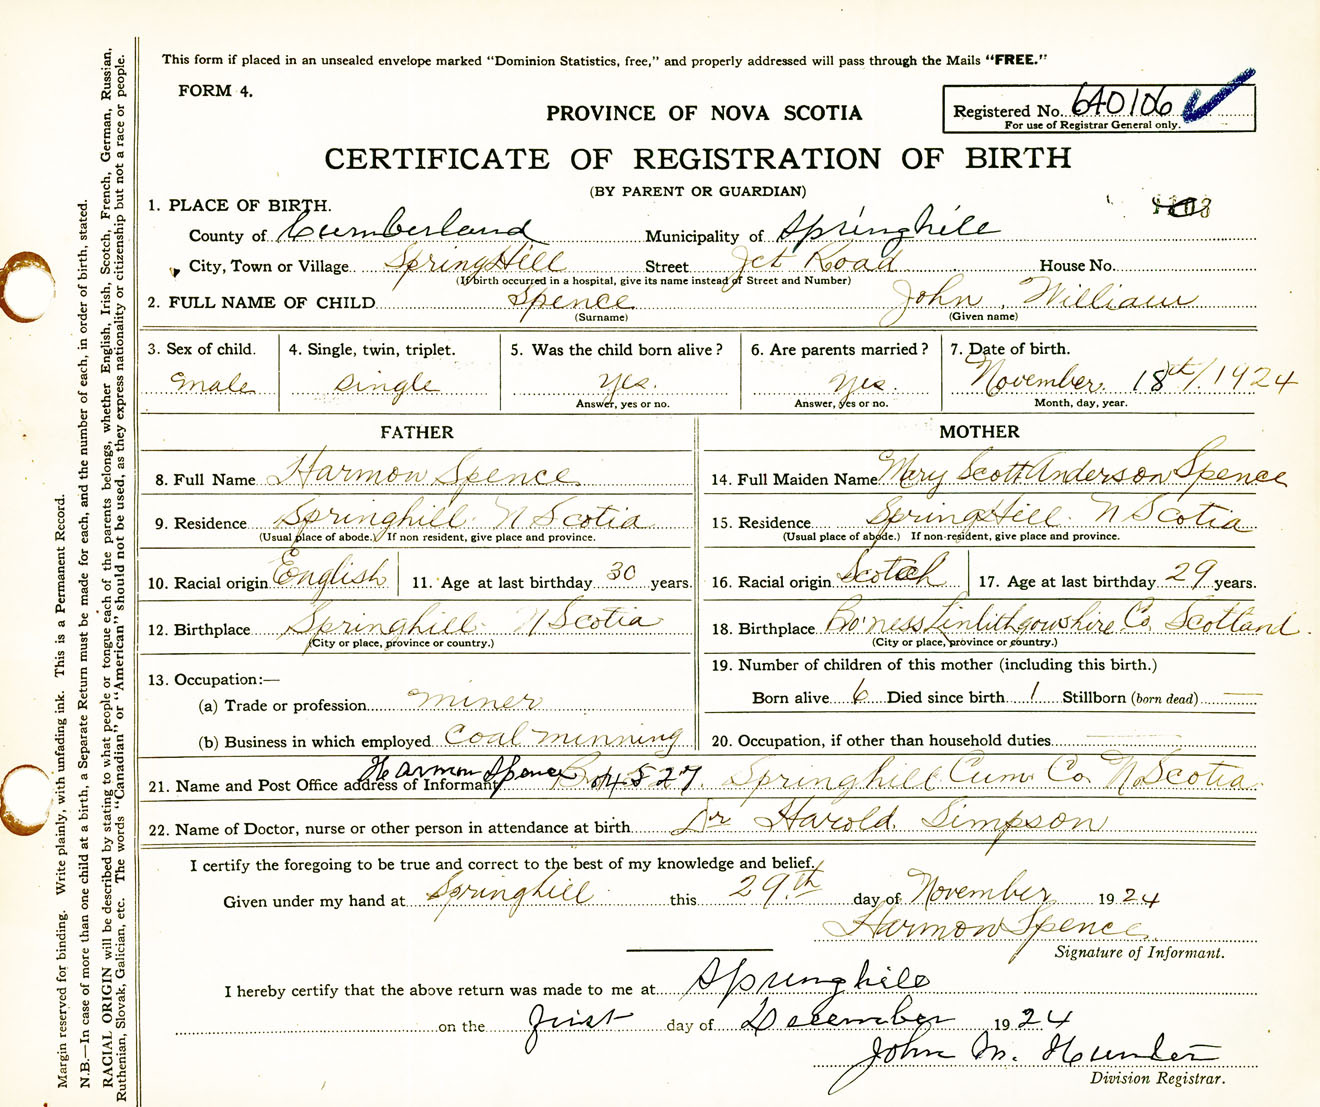 This form if placed in an unsealed envelope marked "Dominion Statistics, free," and properly addressed will pass through the Mails "FREE."
FORM 4.
PROVINCE OF NOVA SCOTIA
Registered No. 640106
For use of Registrar General only.
CERTIFICATE OF REGISTRATION OF BIRTH
(BY PARENT OR GUARDIAN)
1. PLACE OF BIRTH.
County of Cumberland Municipality of Springhill
City, Town or Village SpringHill Street Jct Road House No.
(If birth occurred in a hospital, give its name instead of Street and Number)
2. FULL NAME OF CHILD Spence John William
(Surname) (Given name)
3. Sex of child. 4. Single, twin, triplet. 5. Was the child born alive? 6. Are parents married? 7. Date of birth.
male single yes. yes. November 18th/1924
Answer, yes or no. Answer, yes or no. Month, day, year.
FATHER MOTHER
8. Full Name Harmon Spence 14. Full Maiden Name Mary Scott Anderson Spence
9. Residence Springhill. N Scotia 15. Residence SpringHill. N Scotia
(Usual place of abode.) If non resident, give place and province. (Usual place of abode.) If non-resident, give place and province.
10. Racial origin English 11. Age at last birthday 30 years. 16. Racial origin Scotch 17. Age at last birthday 29 years.
12. Birthplace Springhill. N Scotia 18. Birthplace Bo'ness Linlithgowshire Co. Scotland.
(City or place, province or country.) (City or place, province or country.)
13. Occupation:— 19. Number of children of this mother (including this birth.)
(a) Trade or profession miner Born alive 6 Died since birth 1 Stillborn (born dead)
(b) Business in which employed coal minning 20. Occupation, if other than household duties
21. Name and Post Office address of Informant Harmon Spence Box 527. Springhill Cum. Co. N Scotia
22. Name of Doctor, nurse or other person in attendance at birth Dr Harold. Simpson
I certify the foregoing to be true and correct to the best of my knowledge and belief.
Given under my hand at Springhill this 29.th day of November 1924
Harmon Spence
Signature of Informant.
I hereby certify that the above return was made to me at Springhill
on the first day of December 1924
John M. Hunter
Division Registrar.
Margin reserved for binding. Write plainly, with unfading ink. This is a Permanent Record.
N.B.—In case of more than one child at a birth, a Separate Return must be made for each, and the number of each, in order of birth, stated.
RACIAL ORIGIN will be described by stating to what people or tongue each of the parents belongs, whether English, Irish, Scotch, French, German, Russian,
Ruthenian, Slovak, Galician, etc. The words "Canadian" or "American" should not be used, as they express nationality or citizenship but not a race or people.